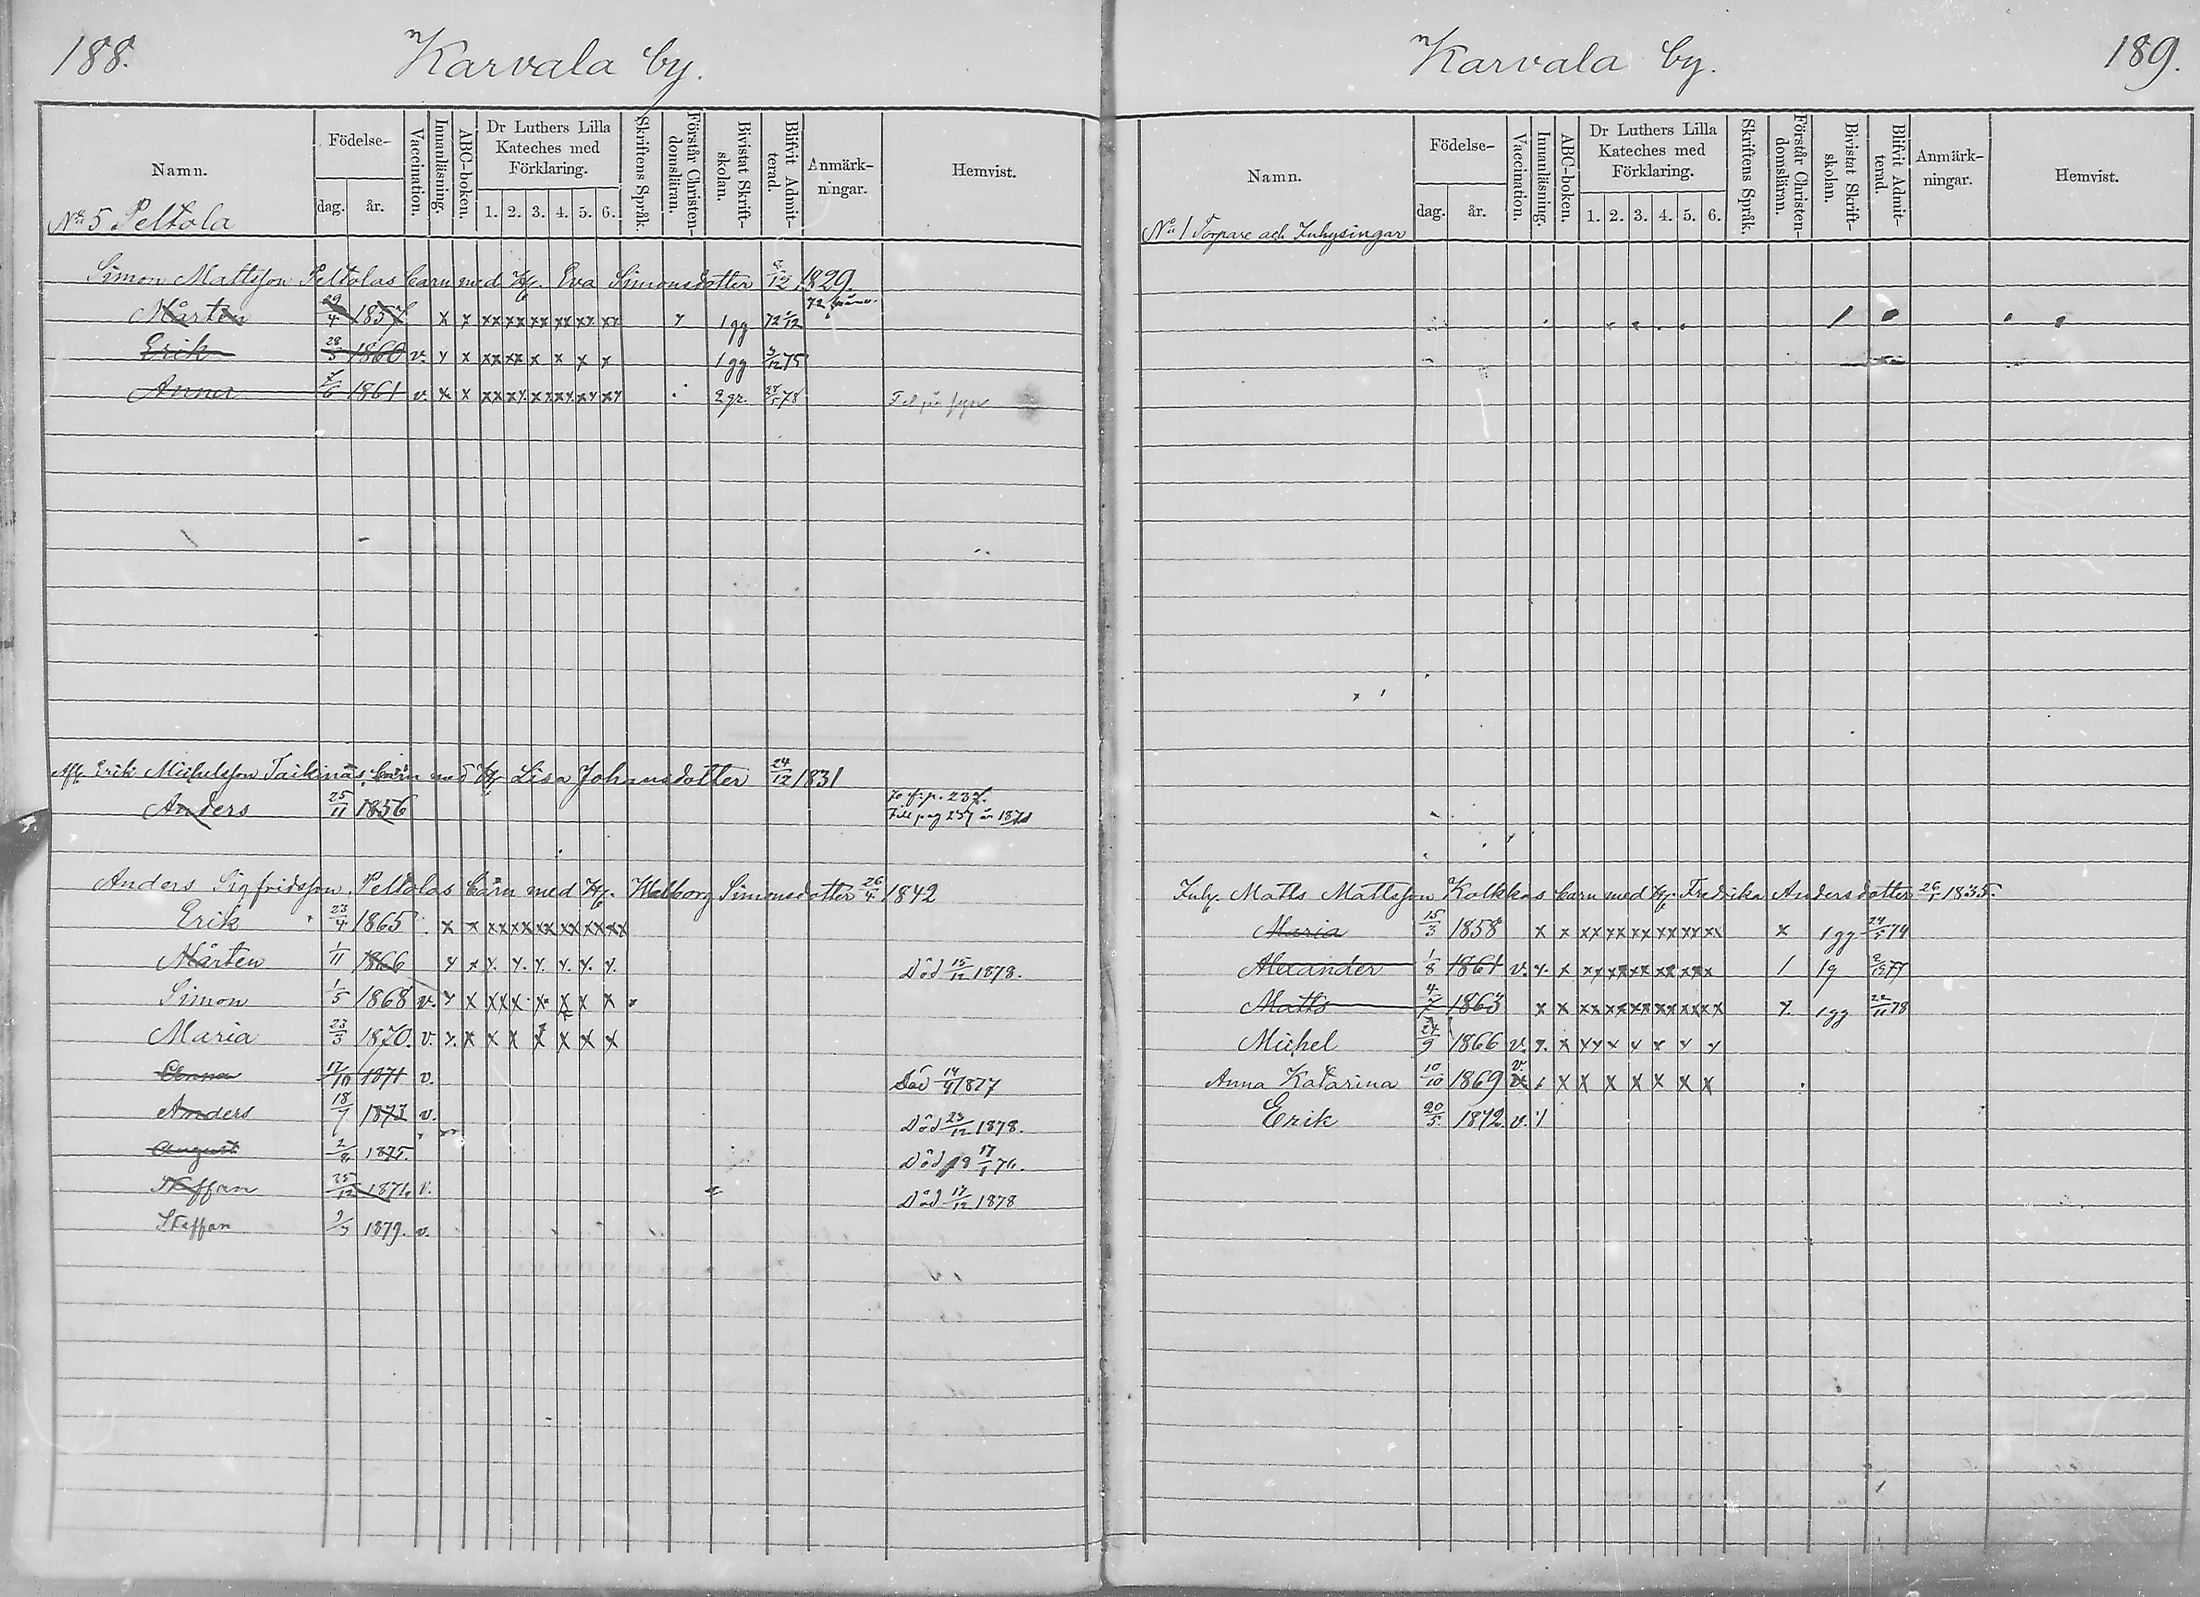 188.
Karvala by.
Namn. Födelse- dag. år. Vaccination. Innanläsning. ABC-boken. Dr Luthers Lilla Kateches med Förklaring. 1. 2. 3. 4. 5. 6. Skriftens Språk. Förstår Christen-domsläran. Bivistat Skrift-skolan. Blifvit Admit-terad. Anmärk-ningar. Hemvist.
No 5 Peltola
Simon Mattsson Peltolas barn med H. Eva Simonsdotter 1829.
Mårten 29/4 1857 x x xx xx xx xx xx xx 1 gg
Erik 1860 v. x x xx xx x x x x 1 gg 75
Anna 1861 v. x x xx xx xx xx xx xx 2 gr. 78
Erik Michelsson Taikinas barn med H. Lisa Johansdotter 24/12 1831
p. 237.
Anders 25/11 1856 Till pag 237
Anders Sigfridsson Peltolas barn med H. Walborg Simonsdotter 26/4 1842
Erik 23/4 1865 x x xx xx xx xx xx xx
Mårten 1/11 1866 Död 15/12 1878.
Simon 1/5 1868 v.
Maria 23/3 1870. v. x x x x x x x
Anna 17/10 1871 v. Död 1877
Anders 18/7 1873 v. Död 23/12 1878.
August 1875. Död
Staffan 25/12 v. Död 17/12 1878
Staffan 1879. v.
189.
Karvala by.
Namn. Födelse- dag. år. Vaccination. Innanläsning. ABC-boken. Dr Luthers Lilla Kateches med Förklaring. 1. 2. 3. 4. 5. 6. Skriftens Språk. Förstår Christen-domsläran. Bivistat Skrift-skolan. Blifvit Admit-terad. Anmärk-ningar. Hemvist.
No 1 Torpare och Inhysingar
Inh. Matts Mattsson Kolkkas barn med H. Fredrika Andersdotter 1835.
Maria 15/3 1858 x x xx xx xx xx xx xx x 1 gg 24/5 74
Alexander 1/8 1861 v. x x xx xx xx xx xx 1 1g 77
Matts 1863 x x xx xx xx xx xx xx x 1 gg 22/11 78
Michel 24/9 1866 v.
Anna Katarina 10/10 1869 v. x x x x x x x
Erik 20/5 1872 v.